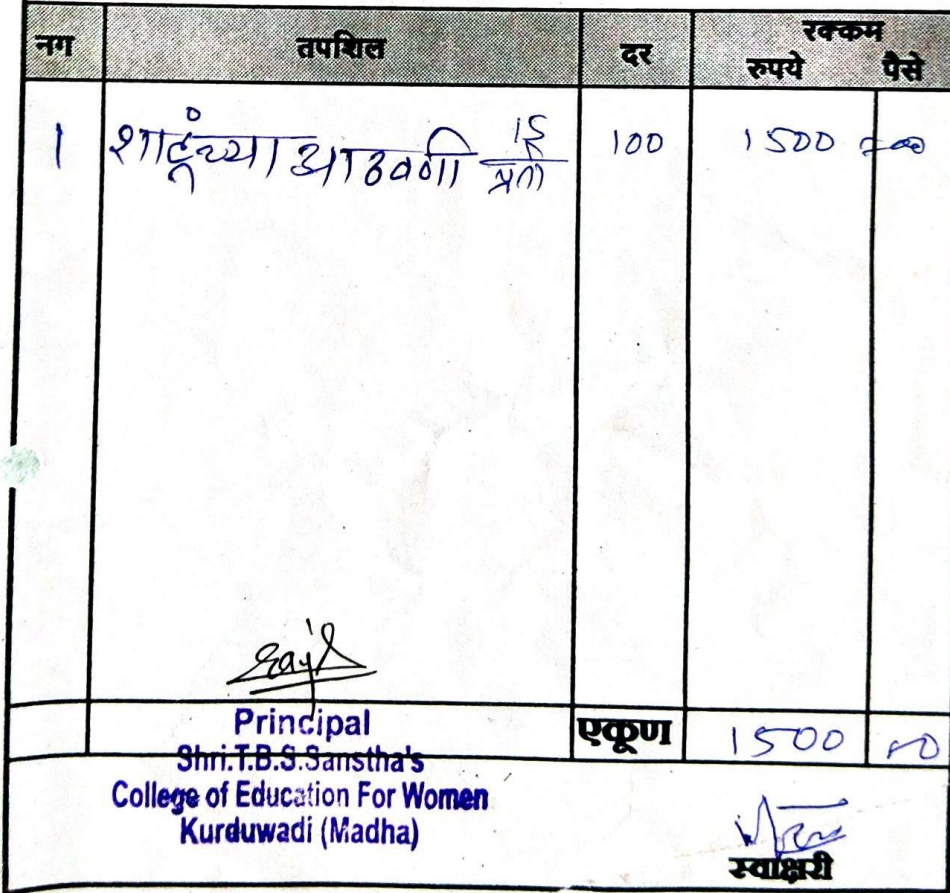 नग तपशिल दर रक्कम
रुपये पैसे
1 शाहूंच्या आठवणी 15 प्रती 100 1500 =00
Principal एकूण 1500 00
Shri.T.B.S.Sanstha's
College of Education For Women
Kurduwadi (Madha)
स्वाक्षरी